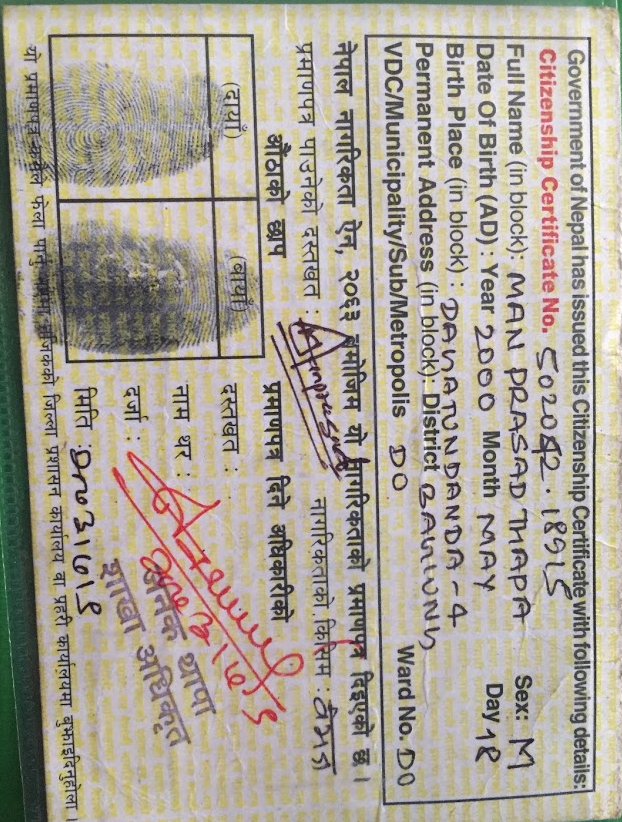 Government of Nepal has issued this Citizenship Certificate with following details:
Citizenship Certificate No. 502042.18915
Full Name (in block): MAN PRASAD THAPA Sex: M
Date Of Birth (AD) : Year 2000 Month MAY Day 18
Birth Place (in block) : DAHATUNDANDA-4
Permanent Address (in block): District BAGLUNG
VDC/Municipality/Sub/Metropolis DO Ward No. DO
नेपाल नागरिकता ऐन, २०६३ बमोजिम यो नागरिकताको प्रमाणपत्र दिइएको छ ।
प्रमाणपत्र पाउनेको दस्तखत : नागरिकताको किसिम : वंशज
औंठाको छाप प्रमाणपत्र दिने अधिकारीको
(दायाँ) (बायाँ)
दस्तखत :
नाम थर : थापा
दर्जा : शाखा अधिकृत
मिति :
यो प्रमाणपत्र कसैले फेला पारे नजिकको जिल्ला प्रशासन कार्यालय वा प्रहरी कार्यालयमा बुझाइदिनुहोला ।